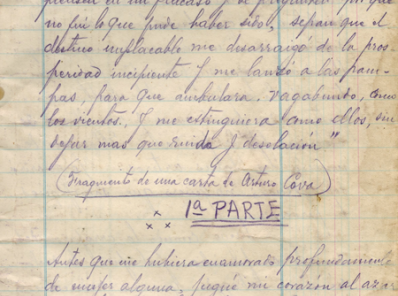 piensen en mi fracaso y se pregunten por qué
no fui lo que pude haber sido, sepan que el
destino implacable me desarraigó de la pros
peridad incipiente y me lanzó a las pam-
pas, para que ambulara, vagabundo, como
los vientos, y me extinguiera como ellos, sin
dejar mas que ruido y desolación"
(Fragmento de una carta de Arturo Cova)
1ª PARTE
Antes que me hubiera enamorado profundamente
de mujer alguna, jugué mi corazón al azar